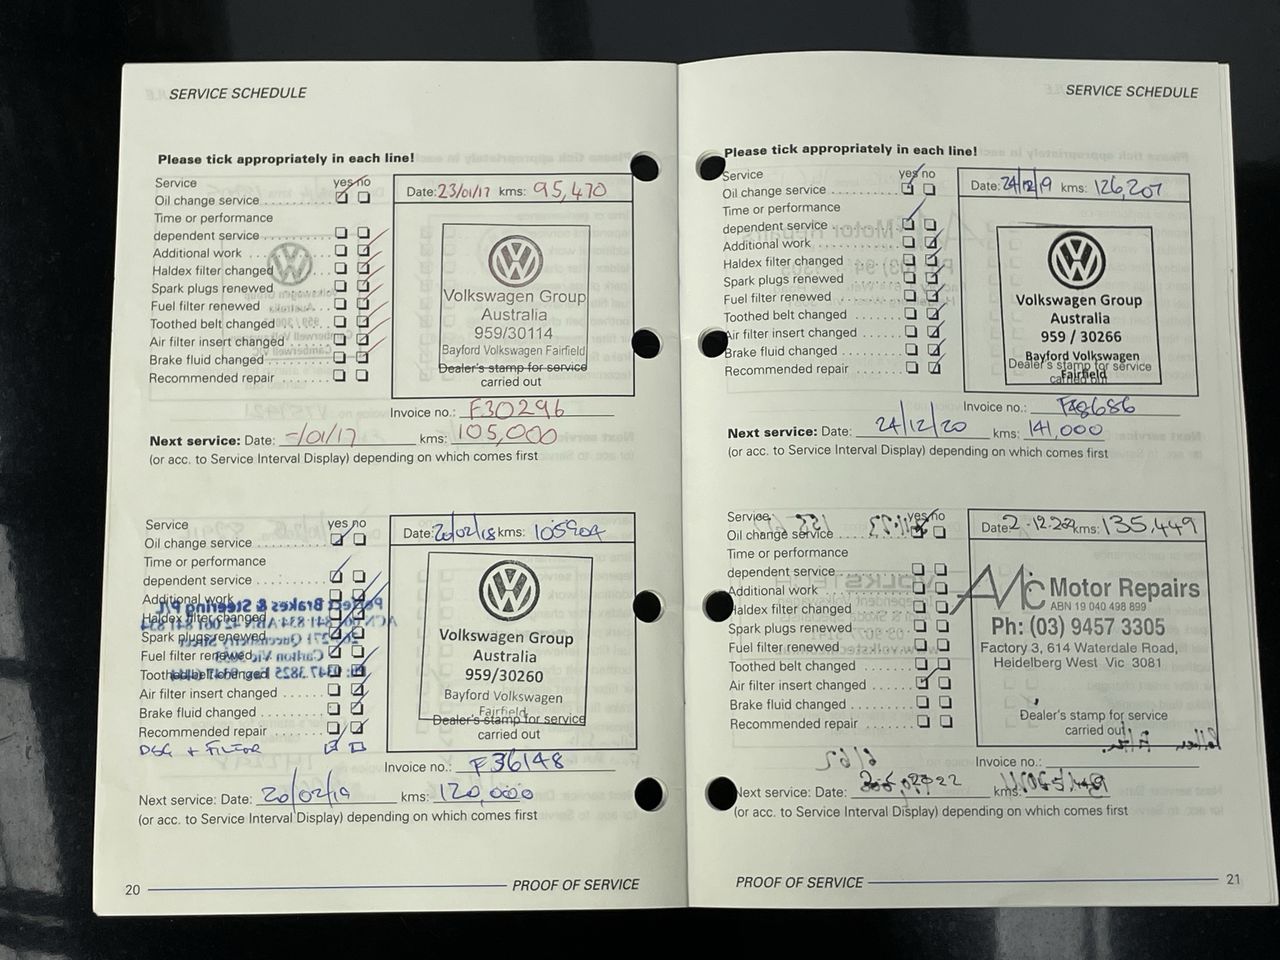 SERVICE SCHEDULE
Please tick appropriately in each line!
Service yes no
Oil change service
Time or performance
dependent service
Additional work
Haldex filter changed
Spark plugs renewed
Fuel filter renewed
Toothed belt changed
Air filter insert changed
Brake fluid changed
Recommended repair
Date: 23/01/17 kms: 95,470
Volkswagen Group
Australia
959/30114
Bayford Volkswagen Fairfield
Dealer's stamp for service
carried out
Invoice no.: F30296
Next service: Date: -/01/17 kms: 105,000
(or acc. to Service Interval Display) depending on which comes first
Service yes no
Oil change service
Time or performance
dependent service
Additional work
Haldex filter changed
Spark plugs renewed
Fuel filter renewed
Toothed belt changed
Air filter insert changed
Brake fluid changed
Recommended repair
DSG + FILTER
Date: 20/02/18 kms: 105904
Volkswagen Group
Australia
959/30260
Bayford Volkswagen
Fairfield
Dealer's stamp for service
carried out
Invoice no.: F36148
Next service: Date: 20/02/19 kms: 120,000
(or acc. to Service Interval Display) depending on which comes first
20 PROOF OF SERVICE
SERVICE SCHEDULE
Please tick appropriately in each line!
Service yes no
Oil change service
Time or performance
dependent service
Additional work
Haldex filter changed
Spark plugs renewed
Fuel filter renewed
Toothed belt changed
Air filter insert changed
Brake fluid changed
Recommended repair
Date: 24/12/19 kms: 126,207
Volkswagen Group
Australia
959 / 30266
Bayford Volkswagen
Fairfield
Dealer's stamp for service
carried out
Invoice no.: F48686
Next service: Date: 24/12/20 kms: 141,000
(or acc. to Service Interval Display) depending on which comes first
Service yes no
Oil change service
Time or performance
dependent service
Additional work
Haldex filter changed
Spark plugs renewed
Fuel filter renewed
Toothed belt changed
Air filter insert changed
Brake fluid changed
Recommended repair
Date: kms: 135,449
Motor Repairs
ABN 19 040 498 899
Ph: (03) 9457 3305
Factory 3, 614 Waterdale Road,
Heidelberg West Vic 3081
Dealer's stamp for service
carried out
Invoice no.:
Next service: Date: kms:
(or acc. to Service Interval Display) depending on which comes first
PROOF OF SERVICE 21